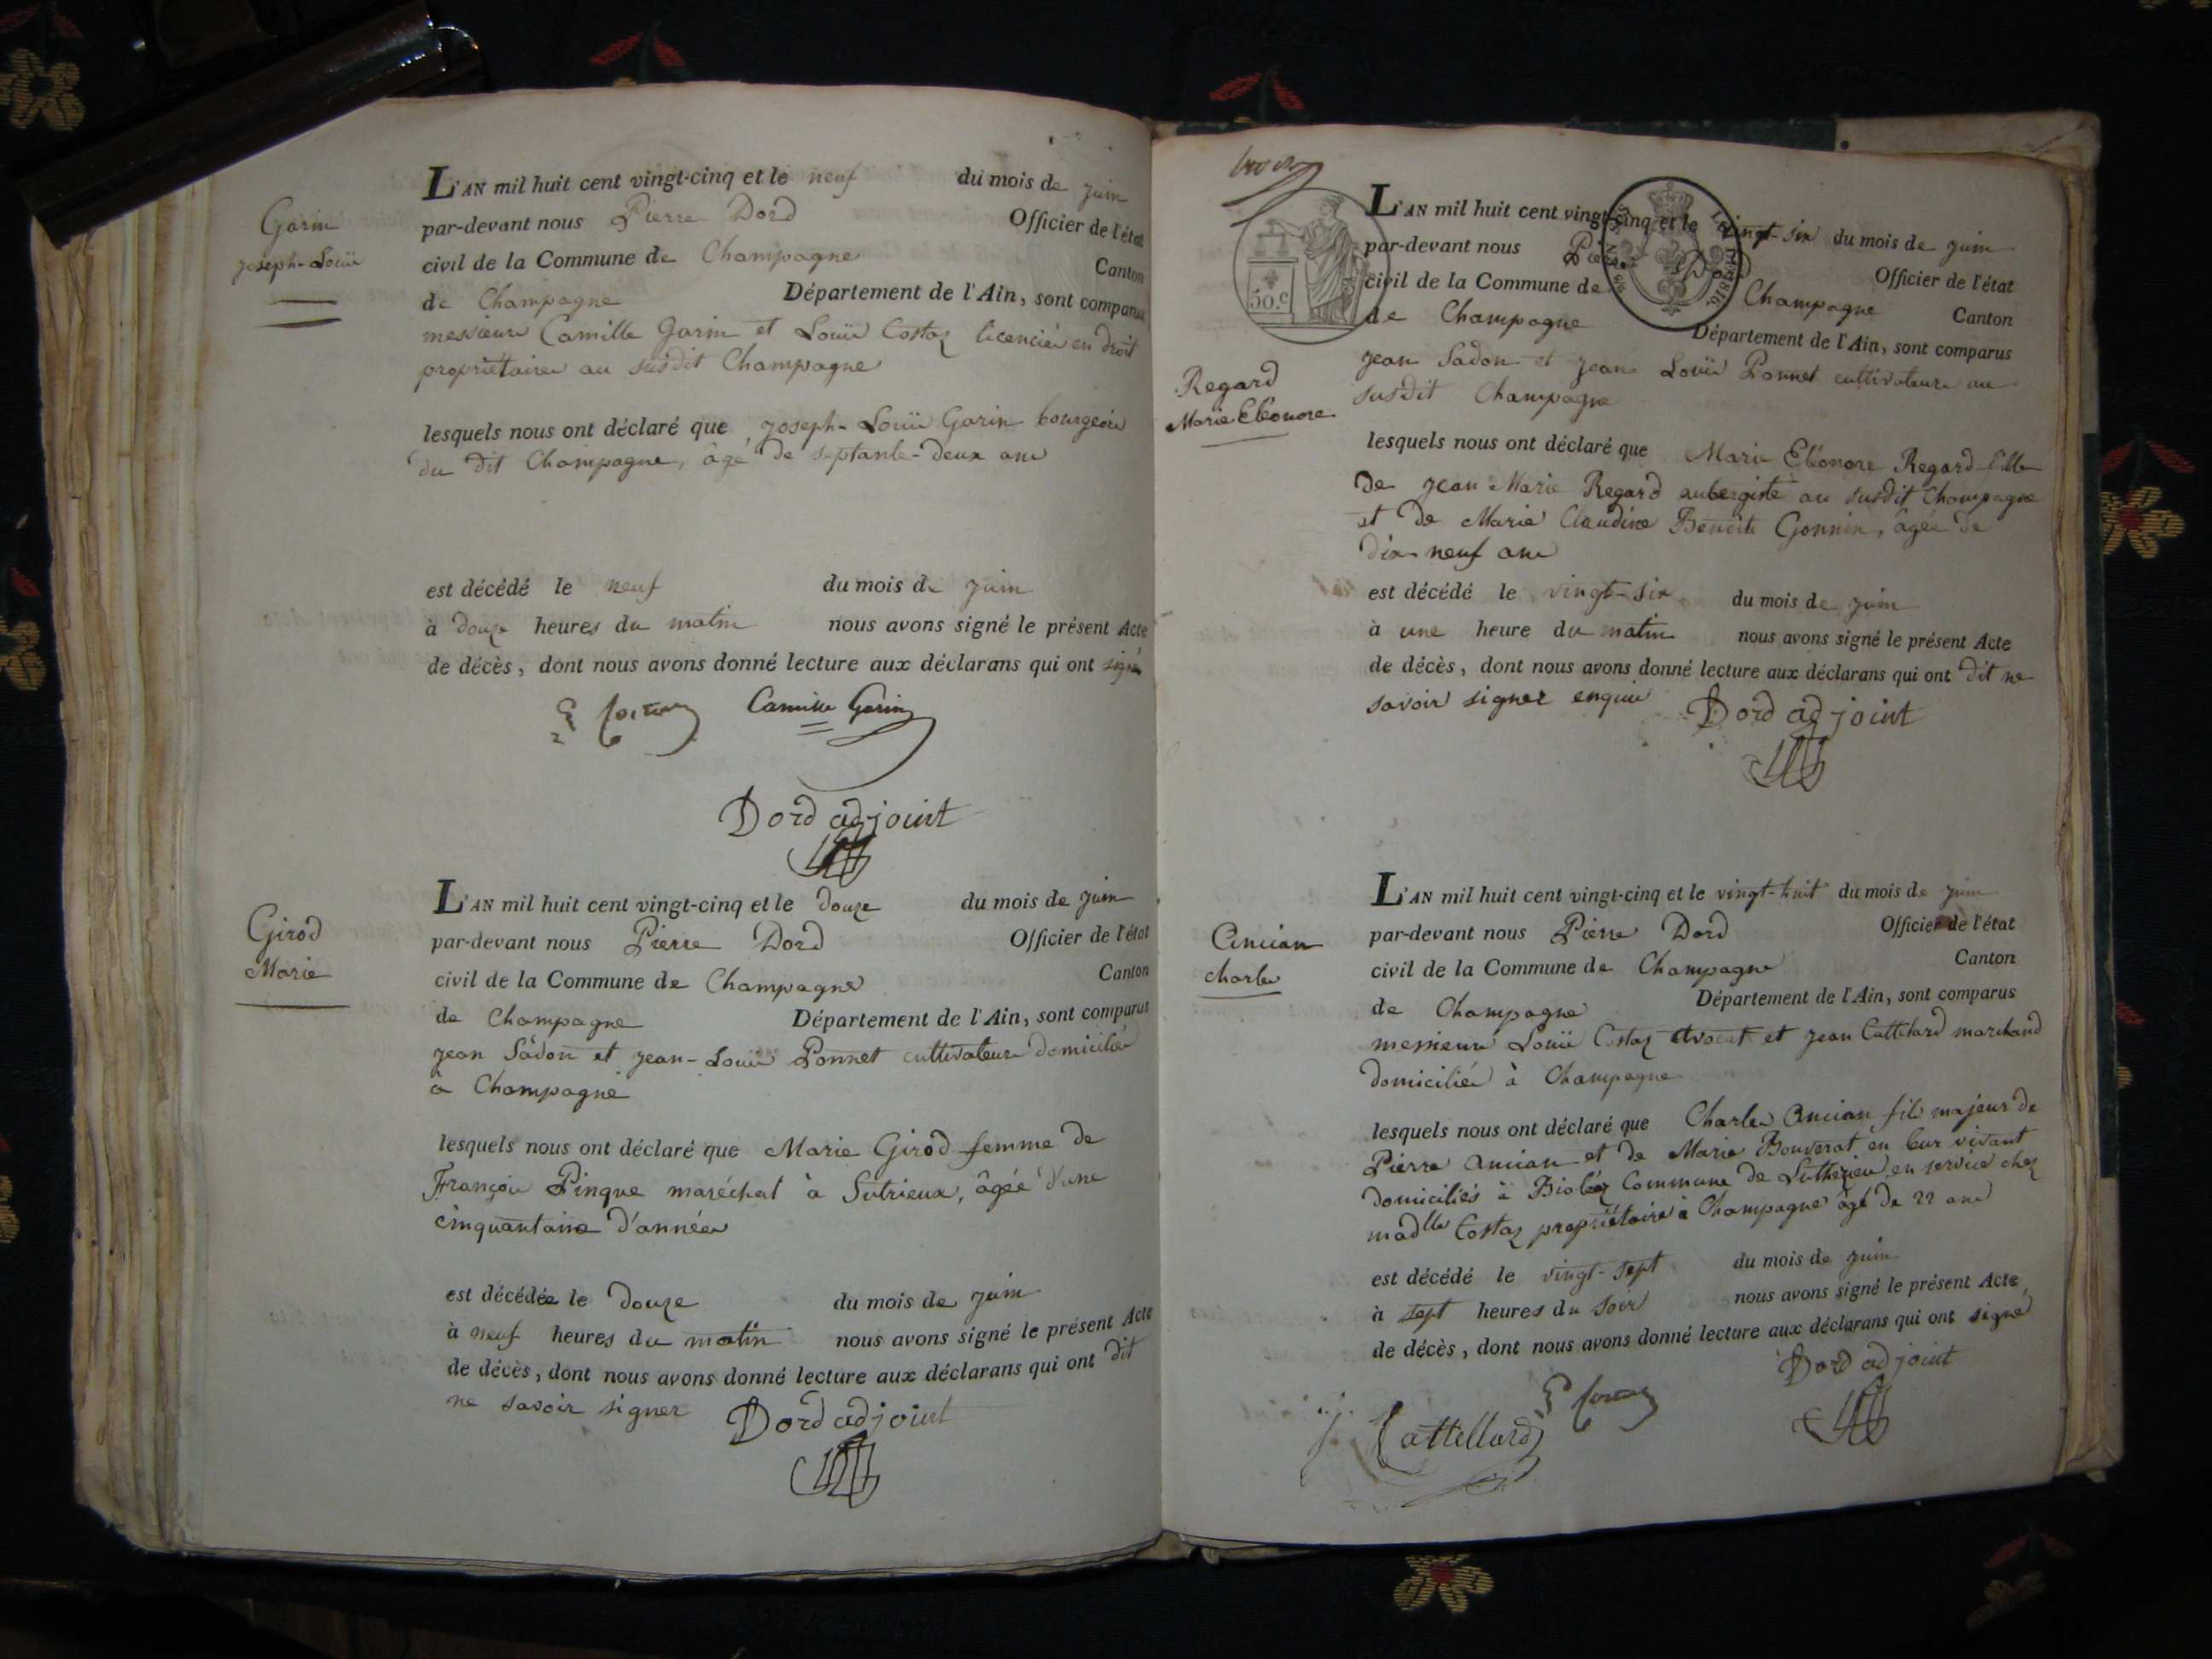 Garin
Joseph-Louis
L'AN mil huit cent vingt-cinq et le neuf du mois de juin
par-devant nous Pierre Dord Officier de l'état
civil de la Commune de Champagne Canton
de Champagne Département de l'Ain, sont comparus
messieurs Camille Garin et Louis Costaz licenciés en droit
propriétaires au susdit Champagne
lesquels nous ont déclaré que Joseph-Louis Garin bourgeois
du dit Champagne, âgé de septante-deux ans
est décédé le neuf du mois de juin
à douze heures du matin nous avons signé le présent Acte
de décès, dont nous avons donné lecture aux déclarans qui ont signé
Camille Garin
Dord adjoint
Girod
Marie
L'AN mil huit cent vingt-cinq et le douze du mois de juin
par-devant nous Pierre Dord Officier de l'état
civil de la Commune de Champagne Canton
de Champagne Département de l'Ain, sont comparus
jean Sadon et jean-Louis Ponnet cultivateurs domiciliés
à Champagne
lesquels nous ont déclaré que Marie Girod femme de
François Pinque maréchal à Sutrieux, âgée d'une
cinquantaine d'années
est décédée le douze du mois de juin
à neuf heures du matin nous avons signé le présent Acte
de décès, dont nous avons donné lecture aux déclarans qui ont dit
ne savoir signer Dord adjoint
50.c
Regard
Marie Eléonore
L'AN mil huit cent vingt-cinq et le vingt-six du mois de juin
par-devant nous Pierre Dord Officier de l'état
civil de la Commune de Champagne Canton
de Champagne Département de l'Ain, sont comparus
jean Sadon et jean Louis Ponnet cultivateurs au
susdit Champagne
lesquels nous ont déclaré que Marie Eléonore Regard fille
de jean Marie Regard aubergiste au susdit Champagne
et de Marie Claudine Benoite Gonnin, âgée de
dix-neuf ans
est décédé le vingt-six du mois de juin
à une heure du matin nous avons signé le présent Acte
de décès, dont nous avons donné lecture aux déclarans qui ont dit ne
savoir signer enquis Dord adjoint
Ancian
charles
L'AN mil huit cent vingt-cinq et le vingt-huit du mois de juin
par-devant nous Pierre Dord Officier de l'état
civil de la Commune de Champagne Canton
de Champagne Département de l'Ain, sont comparus
messieurs Louis Costaz avocat et jean Cattellard marchand
domiciliés à Champagne
lesquels nous ont déclaré que Charles Ancian fils majeur de
Pierre Ancian et de Marie Bouverat en leur vivant
domiciliés à Bioléaz Commune de Luthezieu, en service chez
madlle Costaz propriétaire à Champagne âgé de 22 ans
est décédé le vingt-sept du mois de juin
à sept heures du soir nous avons signé le présent Acte
de décès, dont nous avons donné lecture aux déclarans qui ont signé
Dord adjoint
Cattellard